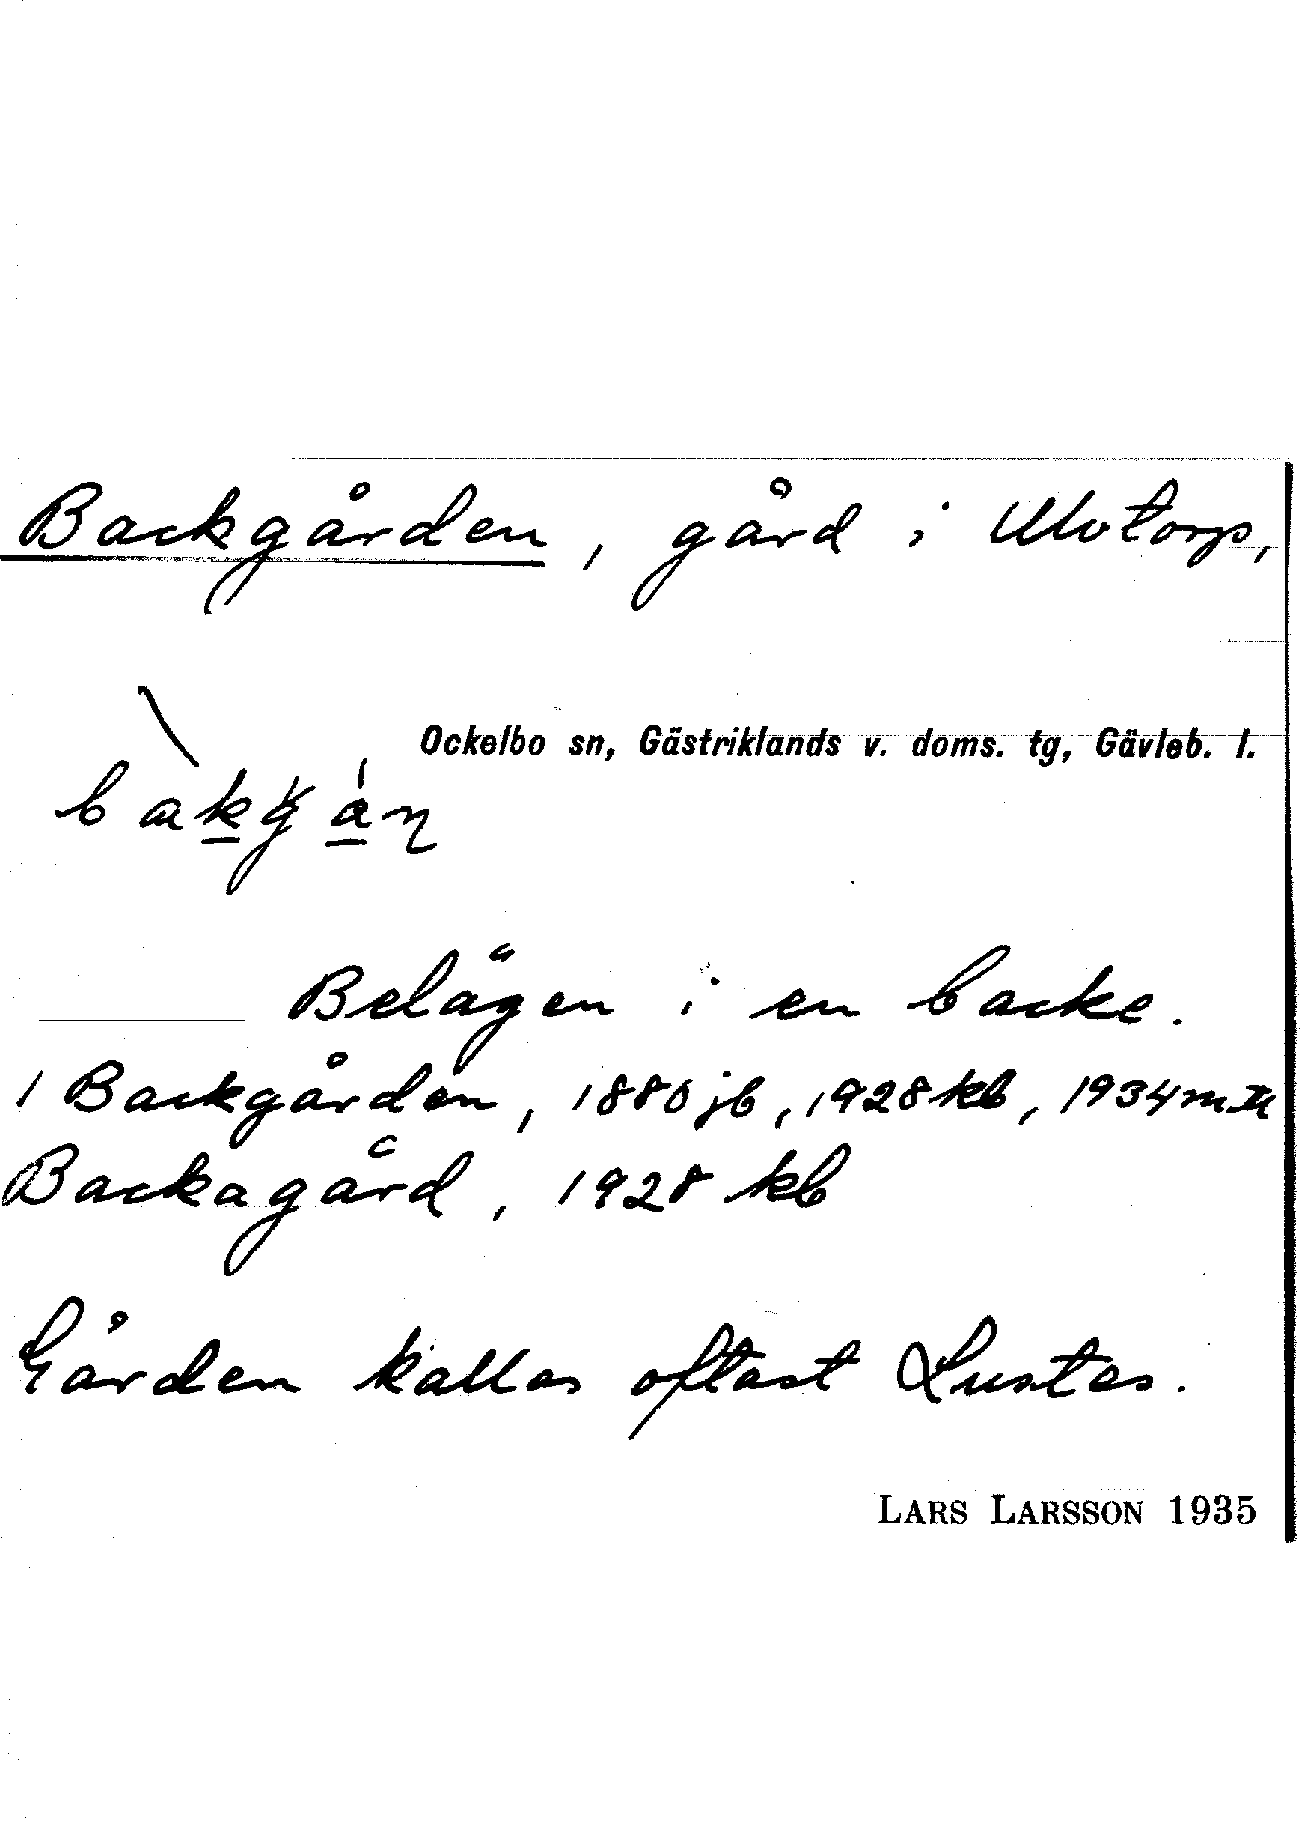 Backgården, gård i Ulvtorp,
Ockelbo sn, Gästriklands v. doms. tg, Gävleb. l.
Belägen i en backe.
1 Backgården, 1880 jb, 1928 kb, 1934 mtl
Backagård, 1928 kb
Gården kallas oftast Lustas.
LARS LARSSON 1935